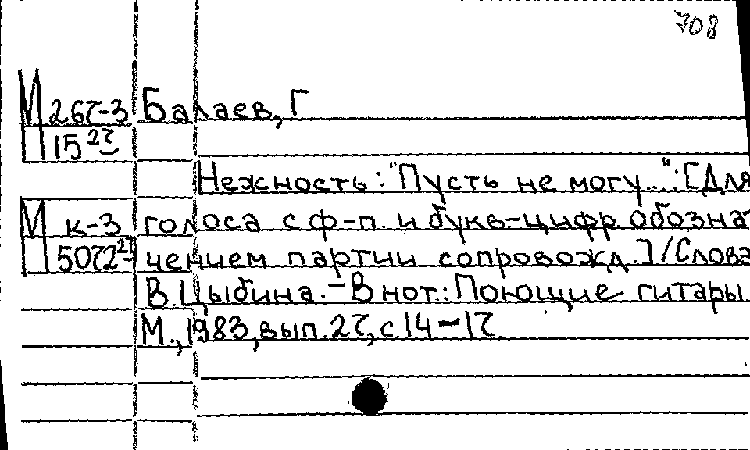 708
М 267-3 Балаев, Г
П 15 27
Нежность: "Пусть не могу...": [Для
М к-3 голоса с ф-п. и букв-цифр. обозна
П 5072 27 чением партии сопровожд.]/Слова
В. Цыбина. - В нот.: Поющие гитары
М., 1983, вып. 27, с 14-17